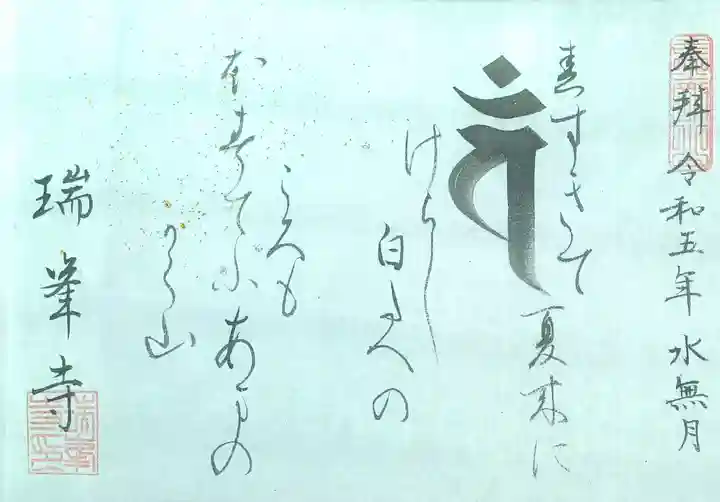 奉拝 令和五年 水無月
春すきて夏来に
けらし
白たへの
ころも
ほすてふあまの
かく山
瑞峯寺